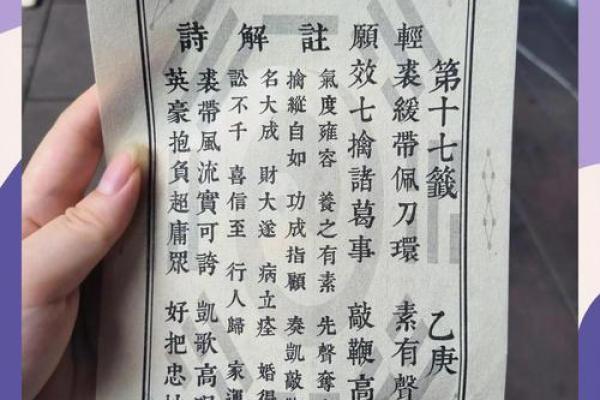 第十七籤 乙庚
輕裘緩帶佩刀環 素有聲
願效七擒諸葛事 敲鞭高
註
氣度雍容 養之有素 先聲奪
擒縱自如 功成指顧 奏凱敲
解
名大成 財大遂 病立痊 婚得
訟不千 喜信至 行人歸 家運
詩
裘帶風流實可誇 凱歌高
英豪抱負超庸眾 好把忠